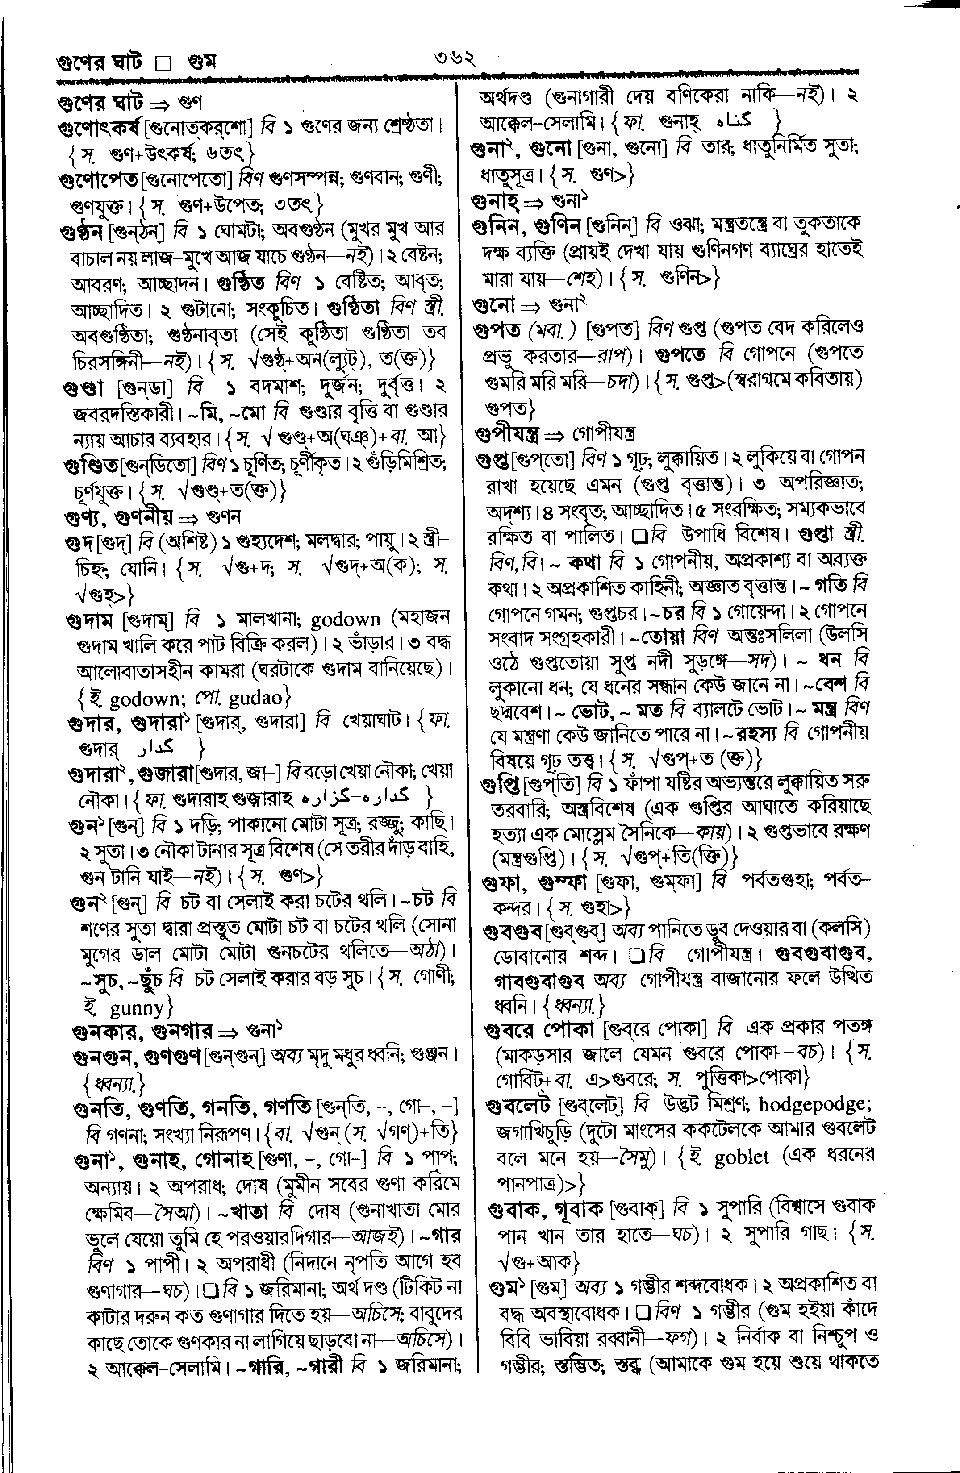 গুণের ঘাট □ গুম
৩৬২
গুণের ঘাট ⇒ গুণ
গুণোৎকর্ষ [গুনোত্‌কর্‌শো] বি ১ গুণের জন্য শ্রেষ্ঠতা।
{স. গুণ+উৎকর্ষ; ৬তৎ}
গুণোপেত [গুনোপেতো] বিণ গুণসম্পন্ন; গুণবান; গুণী;
গুণযুক্ত। {স. গুণ+উপেত; ৩তৎ}
গুণ্ঠন [গুন্‌ঠন] বি ১ ঘোমটা; অবগুণ্ঠন (মুখর মুখ আর
বাচাল নয় লাজ-মুখে আজ যাচে গুণ্ঠন—নই)। ২ বেষ্টন;
আবরণ; আচ্ছাদন। গুণ্ঠিত বিণ ১ বেষ্টিত; আবৃত;
আচ্ছাদিত। ২ গুটানো; সংকুচিত। গুণ্ঠিতা বিণ স্ত্রী.
অবগুণ্ঠিতা; গুণ্ঠনাবৃতা (সেই কুণ্ঠিতা গুণ্ঠিতা তব
চিরসঙ্গিনী—নই)। {স. √গুণ্ঠ্‌+অন(ল্যুট), ত(ক্ত)}
গুণ্ডা [গুন্‌ডা] বি ১ বদমাশ; দুর্জন; দুর্বৃত্ত। ২
জবরদস্তিকারী। ~মি, ~মো বি গুণ্ডার বৃত্তি বা গুণ্ডার
ন্যায় আচার ব্যবহার। {স. √গুণ্ড+অ(ঘঞ)+বা. আ}
গুণ্ডিত [গুন্‌ডিতো] বিণ ১ চূর্ণিত; চূর্ণীকৃত। ২ গুঁড়িমিশ্রিত;
চূর্ণযুক্ত। {স. √গুণ্ড্‌+ত(ক্ত)}
গুণ্য, গুণনীয় ⇒ গুণন
গুদ [গুদ্‌] বি (অশিষ্ট) ১ গুহ্যদেশ; মলদ্বার; পায়ু। ২ স্ত্রী-
চিহ্ন; যোনি। {স. √গু+দ; স. √গুদ্‌+অ(ক); স.
√গুহ্‌>}
গুদাম [গুদাম্‌] বি ১ মালখানা; godown (মহাজন
গুদাম খালি করে পাট বিক্রি করল)। ২ ভাঁড়ার। ৩ বদ্ধ
আলোবাতাসহীন কামরা (ঘরটাকে গুদাম বানিয়েছে)।
{ই godown; পো. gudao}
গুদার, গুদারা১ [গুদার্‌, গুদারা] বি খেয়াঘাট। {ফা.
গুদার্‌ گدار }
গুদারা২, গুজারা [গুদার, জা-] বি বড়ো খেয়া নৌকা; খেয়া
নৌকা। {ফা. গুদারাহ গুজারাহ گداره-گزاره }
গুন১ [গুন্‌] বি ১ দড়ি; পাকানো মোটা সূত্র; রজ্জু; কাছি।
২ সুতা। ৩ নৌকা টানার সূত্র বিশেষ (সে তরীর দাঁড় বাহি,
গুন টানি যাই—নই)। {স. গুণ>}
গুন২ [গুন্‌] বি চট বা সেলাই করা চটের থলি। ~চট বি
শণের সুতা দ্বারা প্রস্তুত মোটা চট বা চটের থলি (সোনা
মুগের ডাল মোটা মোটা গুনচটের থলিতে—অঠা)।
~সুচ, ~ছুঁচ বি চট সেলাই করার বড় সুচ। {স. গোণী;
ই. gunny}
গুনকার, গুনগার ⇒ গুনা১
গুনগুন, গুণগুণ [গুন্‌গুন্‌] অব্য মৃদু মধুর ধ্বনি; গুঞ্জন।
{ধ্বন্যা.}
গুনতি, গুণতি, গনতি, গণতি [গুন্‌তি, -, গো-, -]
বি গণনা; সংখ্যা নিরূপণ। {বা. √গুন (স. √গণ্‌)+তি}
গুনা১, গুনাহ, গোনাহ [গুণা, -, গো-] বি ১ পাপ;
অন্যায়। ২ অপরাধ; দোষ (মুমীন সবের গুণা করিমে
ক্ষেমিব—সৈআ)। ~খাতা বি দোষ (গুনাখাতা মোর
ভুলে যেয়ো তুমি হে পরওয়ারদিগার—আজই)। ~গার
বিণ ১ পাপী। ২ অপরাধী (নিদানে নৃপতি আগে হব
গুণাগার—ঘচ)। □ বি ১ জরিমানা; অর্থ দণ্ড (টিকিট না
কাটার দরুন কত গুণাগার দিতে হয়—অচিসে; বাবুদের
কাছে তোকে গুণকার না লাগিয়ে ছাড়বো না—অচিসে)।
২ আক্কেল-সেলামি। ~গারি, ~গারী বি ১ জরিমানা;
অর্থদণ্ড (গুনাগারী দেয় বণিকেরা নাকি—নই)। ২
আক্কেল-সেলামি। {ফা. গুনাহ্‌ گناه }
গুনা২, গুনো [গুনা, গুনো] বি তার; ধাতুনির্মিত সুতা;
ধাতুসূত্র। {স. গুণ>}
গুনাহ্‌ ⇒ গুনা১
গুনিন, গুণিন [গুনিন্‌] বি ওঝা; মন্ত্রতন্ত্রে বা তুকতাকে
দক্ষ ব্যক্তি (প্রায়ই দেখা যায় গুণিনগণ ব্যাঘ্রের হাতেই
মারা যায়—শেহ)। {স. গুণিন>}
গুনো ⇒ গুনা২
গুপত (মবা.) [গুপত] বিণ গুপ্ত (গুপত বেদ করিলেও
প্রভু করতার—রাপ)। গুপতে বি গোপনে (গুপতে
গুমরি মরি মরি—চদা)। {স. গুপ্ত>(স্বরাগমে কবিতায়)
গুপত}
গুপীযন্ত্র ⇒ গোপীযন্ত্র
গুপ্ত [গুপ্‌তো] বিণ ১ গূঢ়; লুক্কায়িত। ২ লুকিয়ে বা গোপন
রাখা হয়েছে এমন (গুপ্ত বৃত্তান্ত)। ৩ অপরিজ্ঞাত;
অদৃশ্য। ৪ সংবৃত; আচ্ছাদিত। ৫ সংরক্ষিত; সম্যকভাবে
রক্ষিত বা পালিত। □ বি উপাধি বিশেষ। গুপ্তা স্ত্রী.
বিণ, বি। ~ কথা বি ১ গোপনীয়, অপ্রকাশ্য বা অব্যক্ত
কথা। ২ অপ্রকাশিত কাহিনী; অজ্ঞাত বৃত্তান্ত। ~ গতি বি
গোপনে গমন; গুপ্তচর। ~চর বি ১ গোয়েন্দা। ২ গোপনে
সংবাদ সংগ্রহকারী। ~তোয়া বিণ অন্তঃসলিলা (উলসি
ওঠে গুপ্ততোয়া সুপ্ত নদী সুড়ঙ্গে—সদ)। ~ ধন বি
লুকানো ধন; যে ধনের সন্ধান কেউ জানে না। ~বেশ বি
ছদ্মবেশ। ~ ভোট, ~ মত বি ব্যালটে ভোট। ~ মন্ত্র বিণ
যে মন্ত্রণা কেউ জানিতে পারে না। ~রহস্য বি গোপনীয়
বিষয়ে গূঢ় তত্ত্ব। {স. √গুপ্‌+ত (ক্ত)}
গুপ্তি [গুপ্‌তি] বি ১ ফাঁপা যষ্টির অভ্যন্তরে লুক্কায়িত সরু
তরবারি; অস্ত্রবিশেষ (এক গুপ্তির আঘাতে করিয়াছে
হত্যা এক মোস্লেম সৈনিকে—কায়)। ২ গুপ্তভাবে রক্ষণ
(মন্ত্রগুপ্তি)। {স. √গুপ্‌+তি(ক্তি)}
গুফা, গুম্ফা [গুফা, গুম্‌ফা] বি পর্বতগুহা; পর্বত-
কন্দর। {স. গুহা>}
গুবগুব [গুব্‌গুব্‌] অব্য পানিতে ডুব দেওয়ার বা (কলসি)
ডোবানোর শব্দ। □ বি গোপীযন্ত্র। গুবগুবাগুব,
গাবগুবাগুব অব্য গোপীযন্ত্র বাজানোর ফলে উত্থিত
ধ্বনি। {ধ্বন্যা.}
গুবরে পোকা [গুব্‌রে পোকা] বি এক প্রকার পতঙ্গ
(মাকড়সার জালে যেমন গুবরে পোকা-বচ)। {স.
গোবিট+বা. এ>গুবরে; স. পুত্তিকা>পোকা}
গুবলেট [গুব্‌লেট্‌] বি উদ্ভট মিশ্রণ; hodgepodge;
জগাখিচুড়ি (দুটো মাংসের ককটেলকে আমার গুবলেট
বলে মনে হয়—সৈমু)। {ই goblet (এক ধরনের
পানপাত্র)>}
গুবাক, গূবাক [গুবাক্‌] বি ১ সুপারি (বিশ্বাসে গুবাক
পান খান তার হাতে—ঘচ)। ২ সুপারি গাছ। {স.
√গু+আক}
গুম১ [গুম্‌] অব্য ১ গম্ভীর শব্দবোধক। ২ অপ্রকাশিত বা
বদ্ধ অবস্থাবোধক। □ বিণ ১ গম্ভীর (গুম হইয়া কাঁদে
বিবি ভাবিয়া রব্বানী—ফগ)। ২ নির্বাক বা নিশ্চুপ ও
গম্ভীর; স্তম্ভিত; স্তব্ধ (আমাকে গুম হয়ে শুয়ে থাকতে